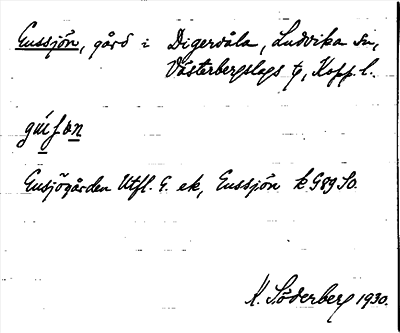 Enssjön, gård i Digervåla, Ludvika sn,
Västerbergslags tg, Kopp. l.
Ensjögården Utfl. G. ek, Enssjön k G89 SO.
K. Söderberg 1930.